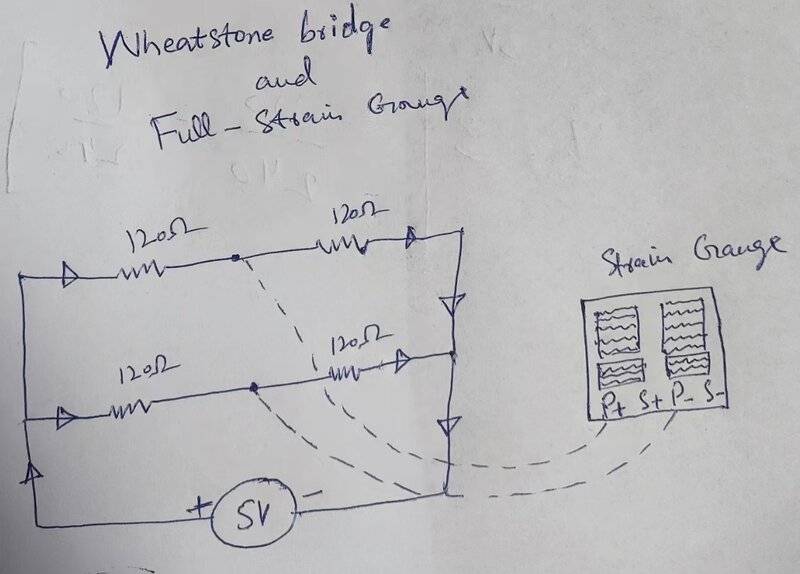 Wheatstone bridge
and
Full-Strain Grauge
120Ω
120Ω
Strain Grauge
120Ω
120Ω
P+ S+ P- S-
+ 5V -